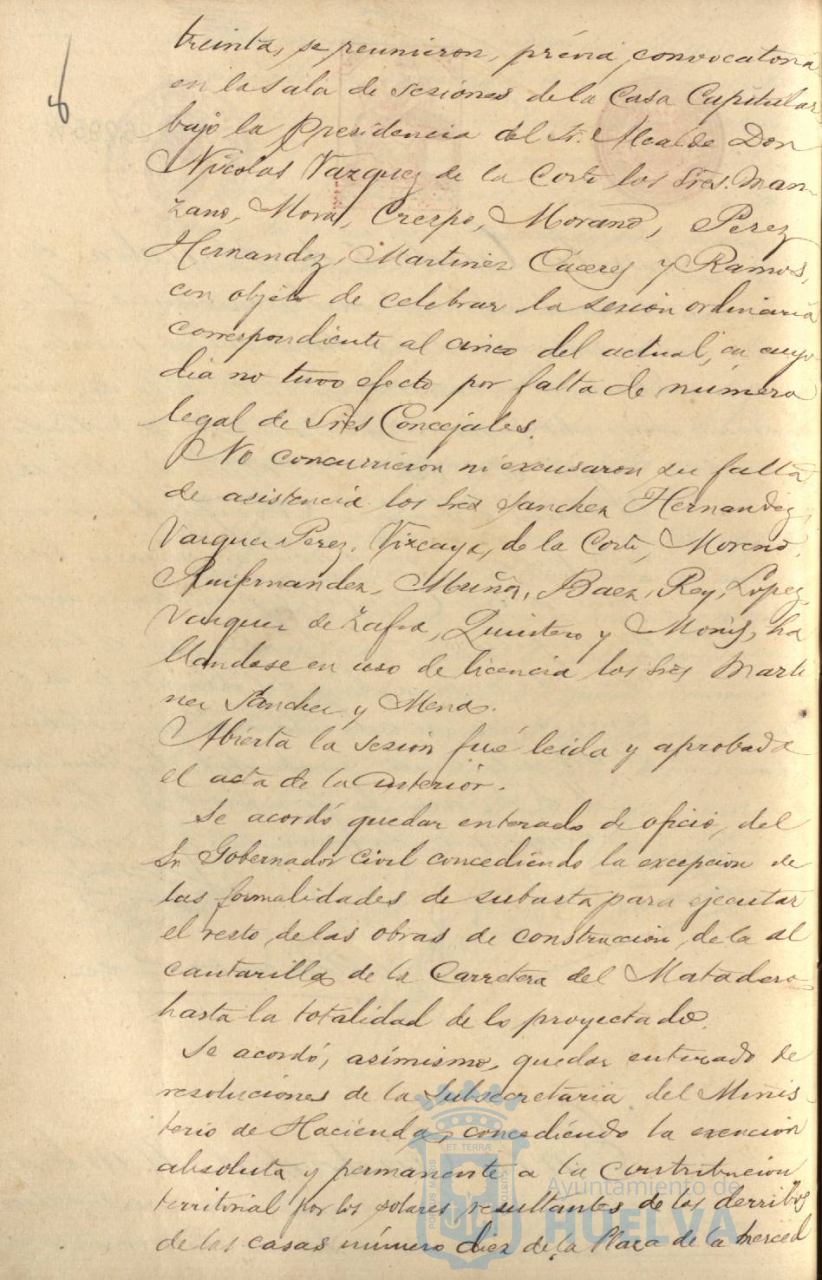 8
treinta, se reunieron, prévia convocatoria
en la Sala de Sesiones de la Casa Capitular
bajo la Presidencia del Sr. Alcalde Don
Nicolas Vazquez de la Corte los Sres. Man-
zano, Mora, Crespo, Morano, Perez
Hernandez, Martinez Cáceres y Ramos,
con objeto de celebrar la sesión ordinaria
correspondiente al cinco del actual, en cuyo
dia no tuvo efecto por falta de número
legal de Sres Concejales.
No concurrieron ni excusaron su falta
de asistencia los Sres Sanchez Hernandez,
Vazquez Perez, Vizcaya, de la Corte, Moreno,
Ruifernandez, Muñoz, Baez, Rey, Lopez,
Vazquez de Zafra, Quintero y Monis, ha
llandose en uso de licencia los Sres Marti
nez Sanchez y Mena.
Abierta la sesión fué leida y aprobada
el acta de la anterior.
Se acordó quedar enterado de oficio, del
Sr. Gobernador Civil concediendo la excepcion de
las formalidades de subasta para ejecutar
el resto de las obras de construccion de la al
cantarilla de la Carretera del Matadero
hasta la totalidad de lo proyectado.
Se acordó, asimismo, quedar enterado de
resoluciones de la Subsecretaria del Minis-
terio de Hacienda, concediendo la exencion
absoluta y permanente a la Contribucion
territorial por los solares resultantes de los derribos
de las casas número diez de la Plaza de la Merced
ET TERRA
Ayuntamiento de
HUELVA